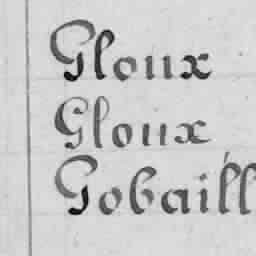 Gloux
Gloux
Gobaill